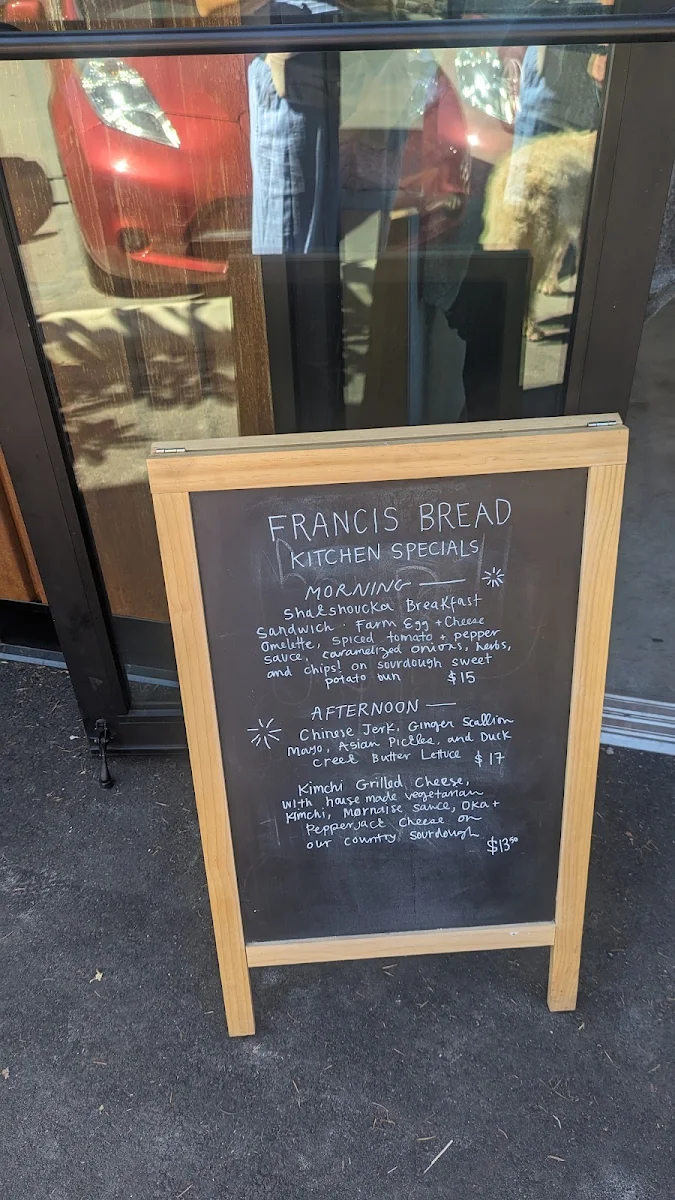 FRANCIS BREAD
KITCHEN SPECIALS
MORNING —
Shakshoucka Breakfast
Sandwich · Farm Egg + Cheese
Omelette, spiced tomato + pepper
sauce, caramelized onions, herbs,
and chips! on sourdough sweet
potato bun $15
AFTERNOON —
Chinese Jerk, Ginger Scallion
Mayo, Asian Pickles, and Duck
Creek Butter Lettuce $17
Kimchi Grilled Cheese,
with house made vegetarian
Kimchi, Mornaise sauce, Oka +
Pepperjack Cheese on
our country sourdough
$13⁵⁰